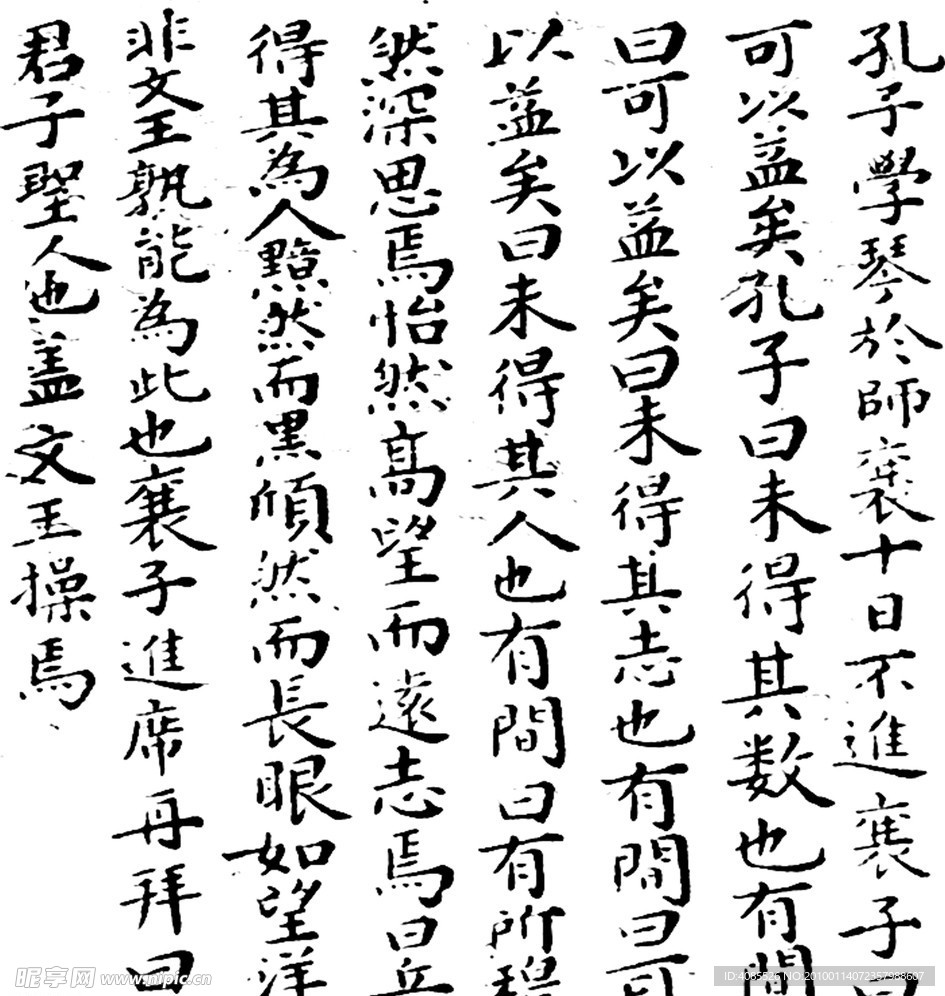 孔子學琴於師襄十日不進襄子曰
可以益矣孔子曰未得其数也有間
曰可以益矣曰未得其志也有間曰可
以益矣曰未得其人也有間曰有所穆
然深思焉怡然高望而遠志焉曰丘
得其為人黯然而黑頎然而長眼如望洋
非文王孰能為此也襄子進席再拜曰
君子聖人也盖文王操焉
昵享网 www.nipic.cn
ID:4085526 NO:20100114072357988607